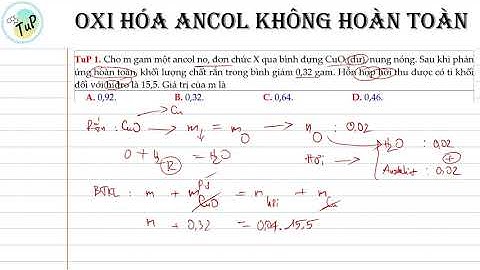 TuP
OXI HÓA ANCOL KHÔNG HOÀN TOÀN
TuP 1. Cho m gam một ancol no, đơn chức X qua bình đựng CuO (dư) nung nóng. Sau khi phản
ứng hoàn toàn, khối lượng chất rắn trong bình giảm 0,32 gam. Hỗn hợp hơi thu được có tỉ khối
đối với hiđro là 15,5. Giá trị của m là
A. 0,92. B. 0,32. C. 0,64. D. 0,46.
Cu
Rắn : CuO m↓ = m O n O : 0,02
H2O : 0,02
O + H2 = H2O Hơi +
Anđehit : 0,02
BTKL : m + m CuO = m hơi + m Cu
m + 0,32 = 0,04.15,5